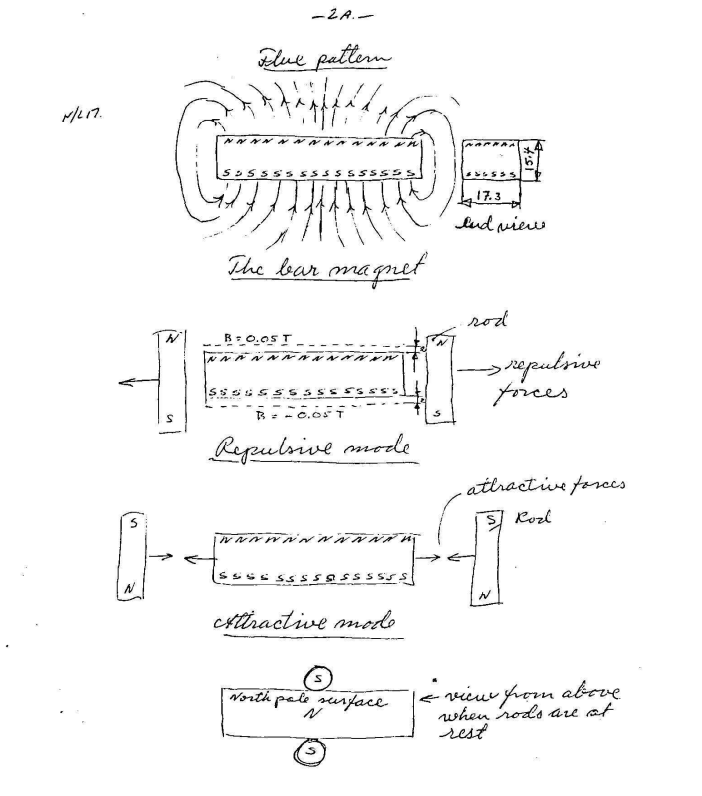 -2A.-
Flux pattern
N/L17.
N N N N N N N N N N N N N
S S S S S S S S S S S S S S S
N N N N N N
S S S S S S
15.4
17.3
End view
The bar magnet
N
B = 0.05 T
N
rod
N N N N N N N N N N N N N N
repulsive
S S S S S S S S S S S S S S S
forces
S
B = - 0.05 T
S
Repulsive mode
attractive forces
S
S
Rod
N N N N N N N N N N N N N
S S S S S S S S S S S S S S
N
N
Attractive mode
S
North pole surface
N
view from above
when rods are at
rest
S